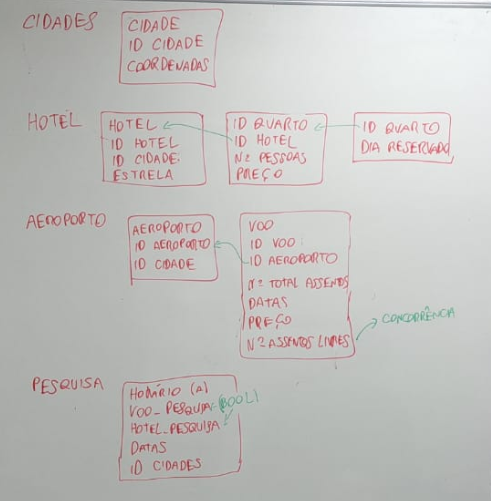 CIDADES
CIDADE
ID CIDADE
COORDENADAS
HOTEL
HOTEL
ID HOTEL
ID CIDADE
ESTRELA
ID QUARTO
ID HOTEL
Nº PESSOAS
PREÇO
ID QUARTO
DIA RESERVADO
AEROPORTO
AEROPORTO
ID AEROPORTO
ID CIDADE
VOO
ID VOO
ID AEROPORTO
Nº TOTAL ASSENTOS
DATAS
PREÇO
Nº ASSENTOS LIVRES
CONCORRÊNCIA
PESQUISA
HORÁRIO (A)
VOO_PESQUISA (BOOL)
HOTEL_PESQUISA
DATAS
ID CIDADES